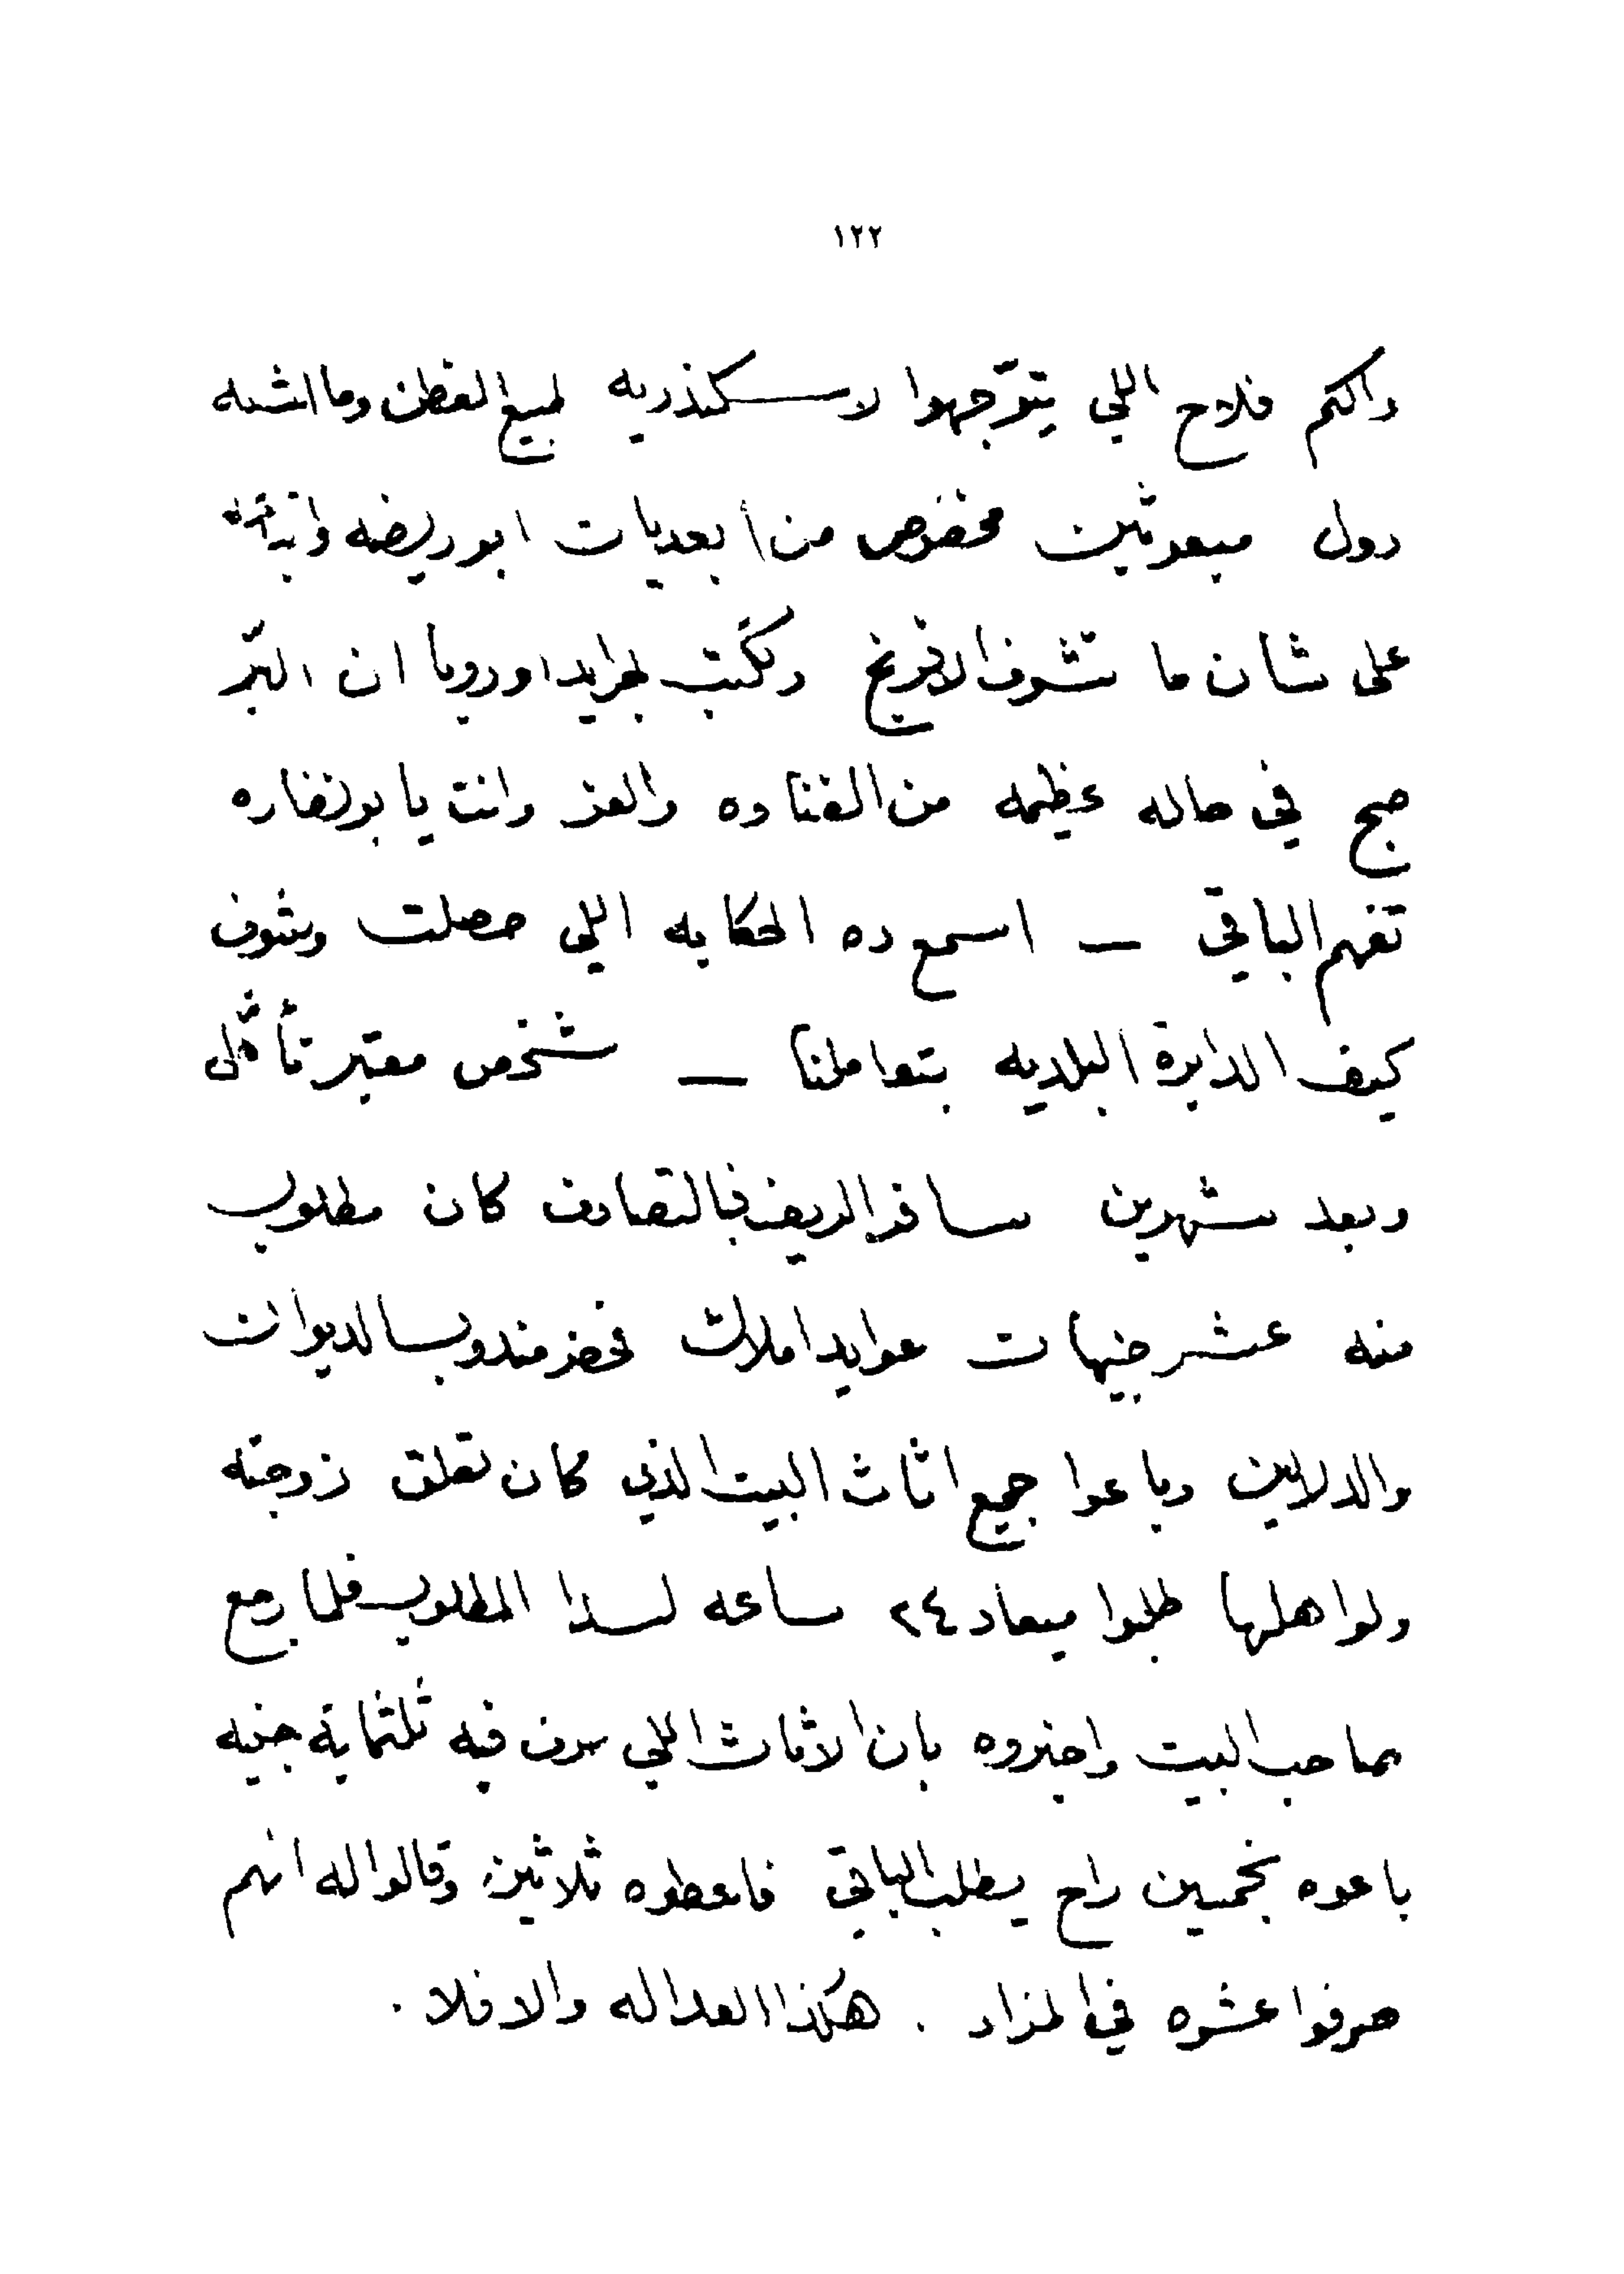 ١٢٢
والكم فلاح اللي يتوجّهوا لاسكندريه لمبيع القطن وما اشبه
دول مبعوثين مخصوص من أبعديات ابو ريضه
على شان ما تشوف الافرنج وتكتب لجرايد اوروبا ان البرّ
صبح في حاله عظيمه من الغناوه والعز وانت يا بو نضاره
تفهم الباقي — اسمع ده الحكايه اللي حصلت وشوف
كيف الدايرة البلديه بتعاملنا — شخص معتبر تأهّل
وبعد شهرين سافر الريف فبالتصادف كان مطلوب
منه عشر جنيهات عوايد املاك فحضر مندوب الديوان
والدلالين وباعوا جميع اثاث البيت الذي كان تعلق زوجته
ولو اهلها طلبوا ميعاد ٢٤ ساعه لسدا المطلوب فلما رجع
صاحب البيت واخبروه بان الاثاث اللي صرف فيه ثلثماية جنيه
باعوه بخمسين راح يطلب الباقي فاعطوه ثلاثين وقالوا له انهم
صرفوا عشره في المزاد . هكذا العداله والا فلا .